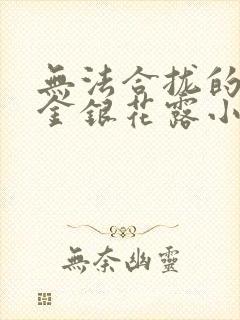 無法合拢的
金銀花露小
無奈幽靈